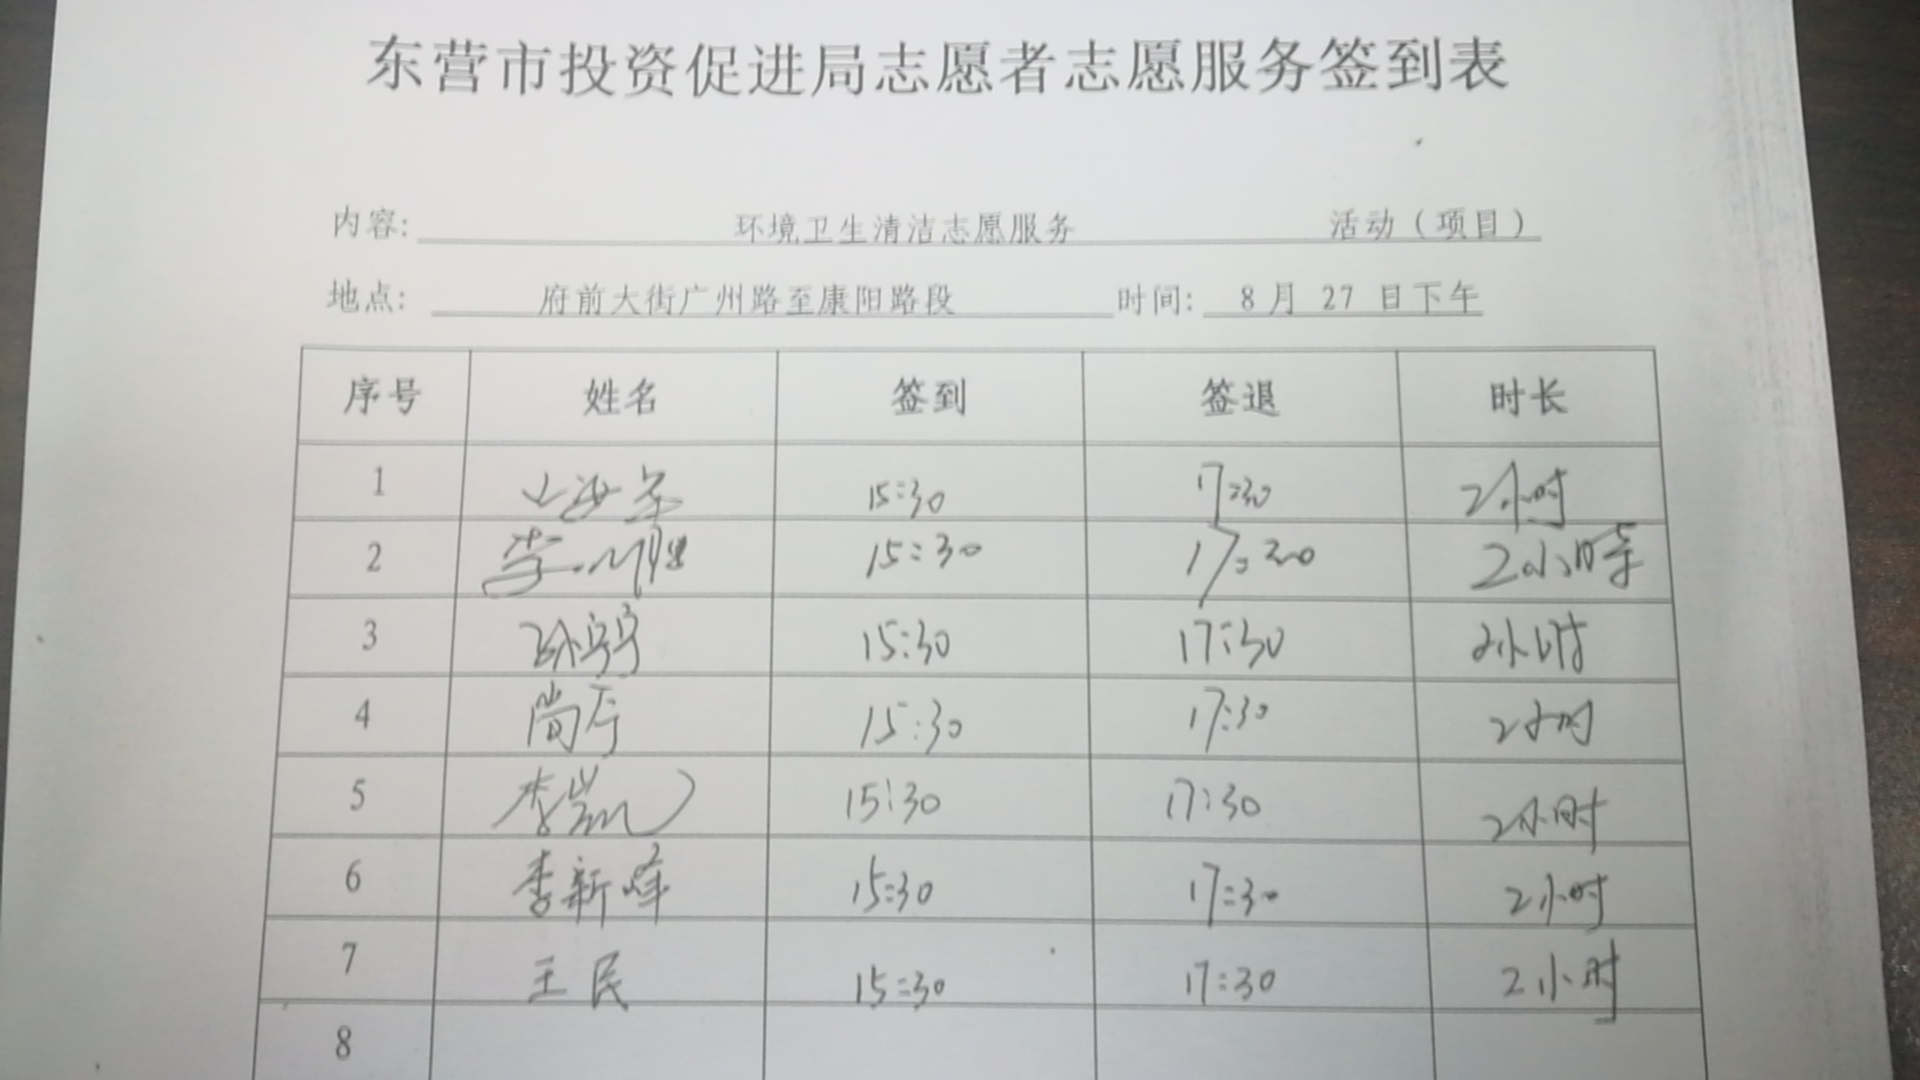 东营市投资促进局志愿者志愿服务签到表
内容: 环境卫生清洁志愿服务 活动（项目）
地点: 府前大街广州路至康阳路段 时间: 8月 27 日下午
序号 姓名 签到 签退 时长
1 15:30 17:30 2小时
2 李 15:30 17:30 2小時
3 孙宁宁 15:30 17:30 2小时
4 尚 15:30 17:30 2小时
5 李凯 15:30 17:30 2小时
6 李新峰 15:30 17:30 2小时
7 王民 15:30 17:30 2小时
8